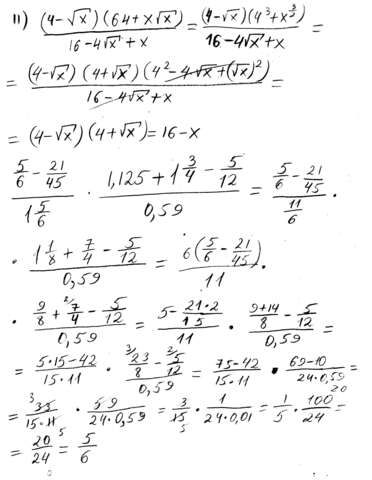 11) ((4-√x)(64+x√x))/(16-4√x+x) = ((4-√x)(4³+x^(3/2)))/(16-4√x+x) =
= ((4-√x)(4+√x)(4²-4√x+(√x)²))/(16-4√x+x) =
= (4-√x)(4+√x)=16-x
(5/6 - 21/45)/(1 5/6) · (1,125+1 3/4 - 5/12)/(0,59) = (5/6 - 21/45)/(11/6) ·
· (1 1/8 + 7/4 - 5/12)/(0,59) = (6(5/6 - 21/45))/11 ·
· (9/8 + ²/7/4 - 5/12)/(0,59) = (5 - (21·2)/15)/11 · ((9+14)/8 - 5/12)/(0,59) =
= (5·15-42)/(15·11) · (³/23/8 - ²/5/12)/(0,59) = (75-42)/(15·11) · (69-10)/(24·0,59) =
= ³/33/(15·11) · 59/(24·0,59) = 3/15 5 · 1/(24·0,01) = 1/5 · 100/24 20 =
= 20/24 5 = 5/6